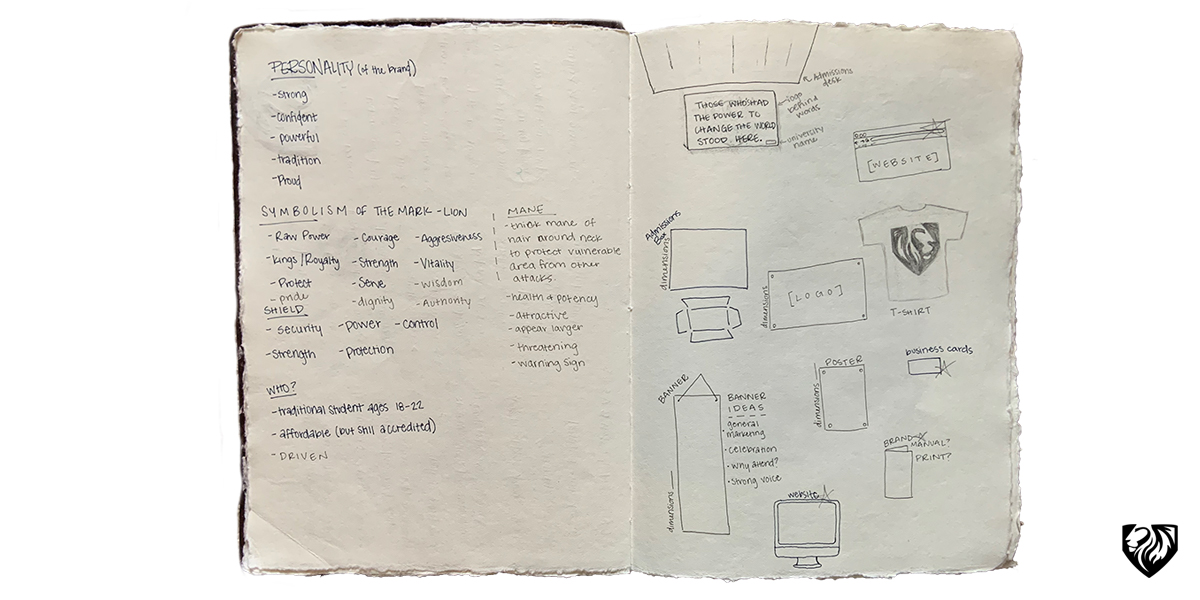 PERSONALITY (of the brand)
-strong
-confident
- powerful
-tradition
-Proud
SYMBOLISM OF THE MARK - LION
-Raw Power
-Courage
-Aggresiveness
-Kings/Royalty
-Strength
-Vitality
-Protect
-Serve
-wisdom
-pride
-dignity
-Authority
SHIELD
- security
-power
-control
-strength
-protection
WHO?
-traditional student ages 18-22
-affordable (but still accredited)
-DRIVEN
MANE
-think mane of
hair around neck
to protect vulnerable
area from other
attacks.
-health & potency
-attractive
-appear larger
-threatening
-warning sign
Admissions
desk
THOSE WHO'S HAD
THE POWER TO
CHANGE THE WORLD
STOOD HERE.
logo
behind
words
university
name
[WEBSITE]
Admissions
Box
dimensions
[LOGO]
dimensions
T-SHIRT
BANNER
dimensions
BANNER
IDEAS
· general
marketing
· celebration
· Why attend?
· Strong voice
POSTER
dimensions
business cards
BRAND
MANUAL?
PRINT?
website